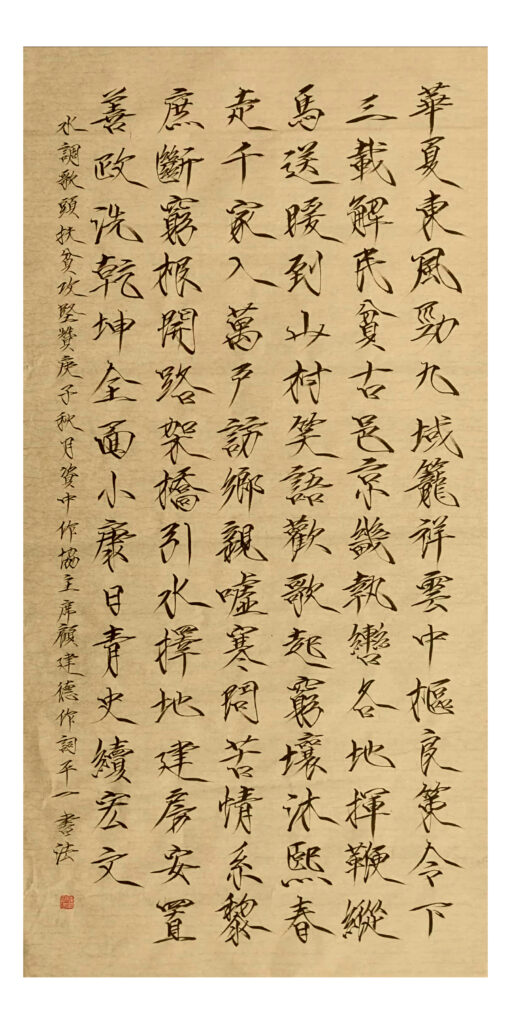 華夏東風勁九域籠祥雲中樞良策令下
三載解民貧古邑京畿執轡各地揮鞭縱
馬送暖到山村笑語歡歌起窮壤沐熙春
走千家入萬戶訪鄉親噓寒問苦情系黎
庶斷窮根開路架橋引水擇地建房安置
善政洗乾坤全面小康日青史續宏文
水調歌頭扶貧攻堅贊庚子秋月資中作協主席顧建德作詞平一書法